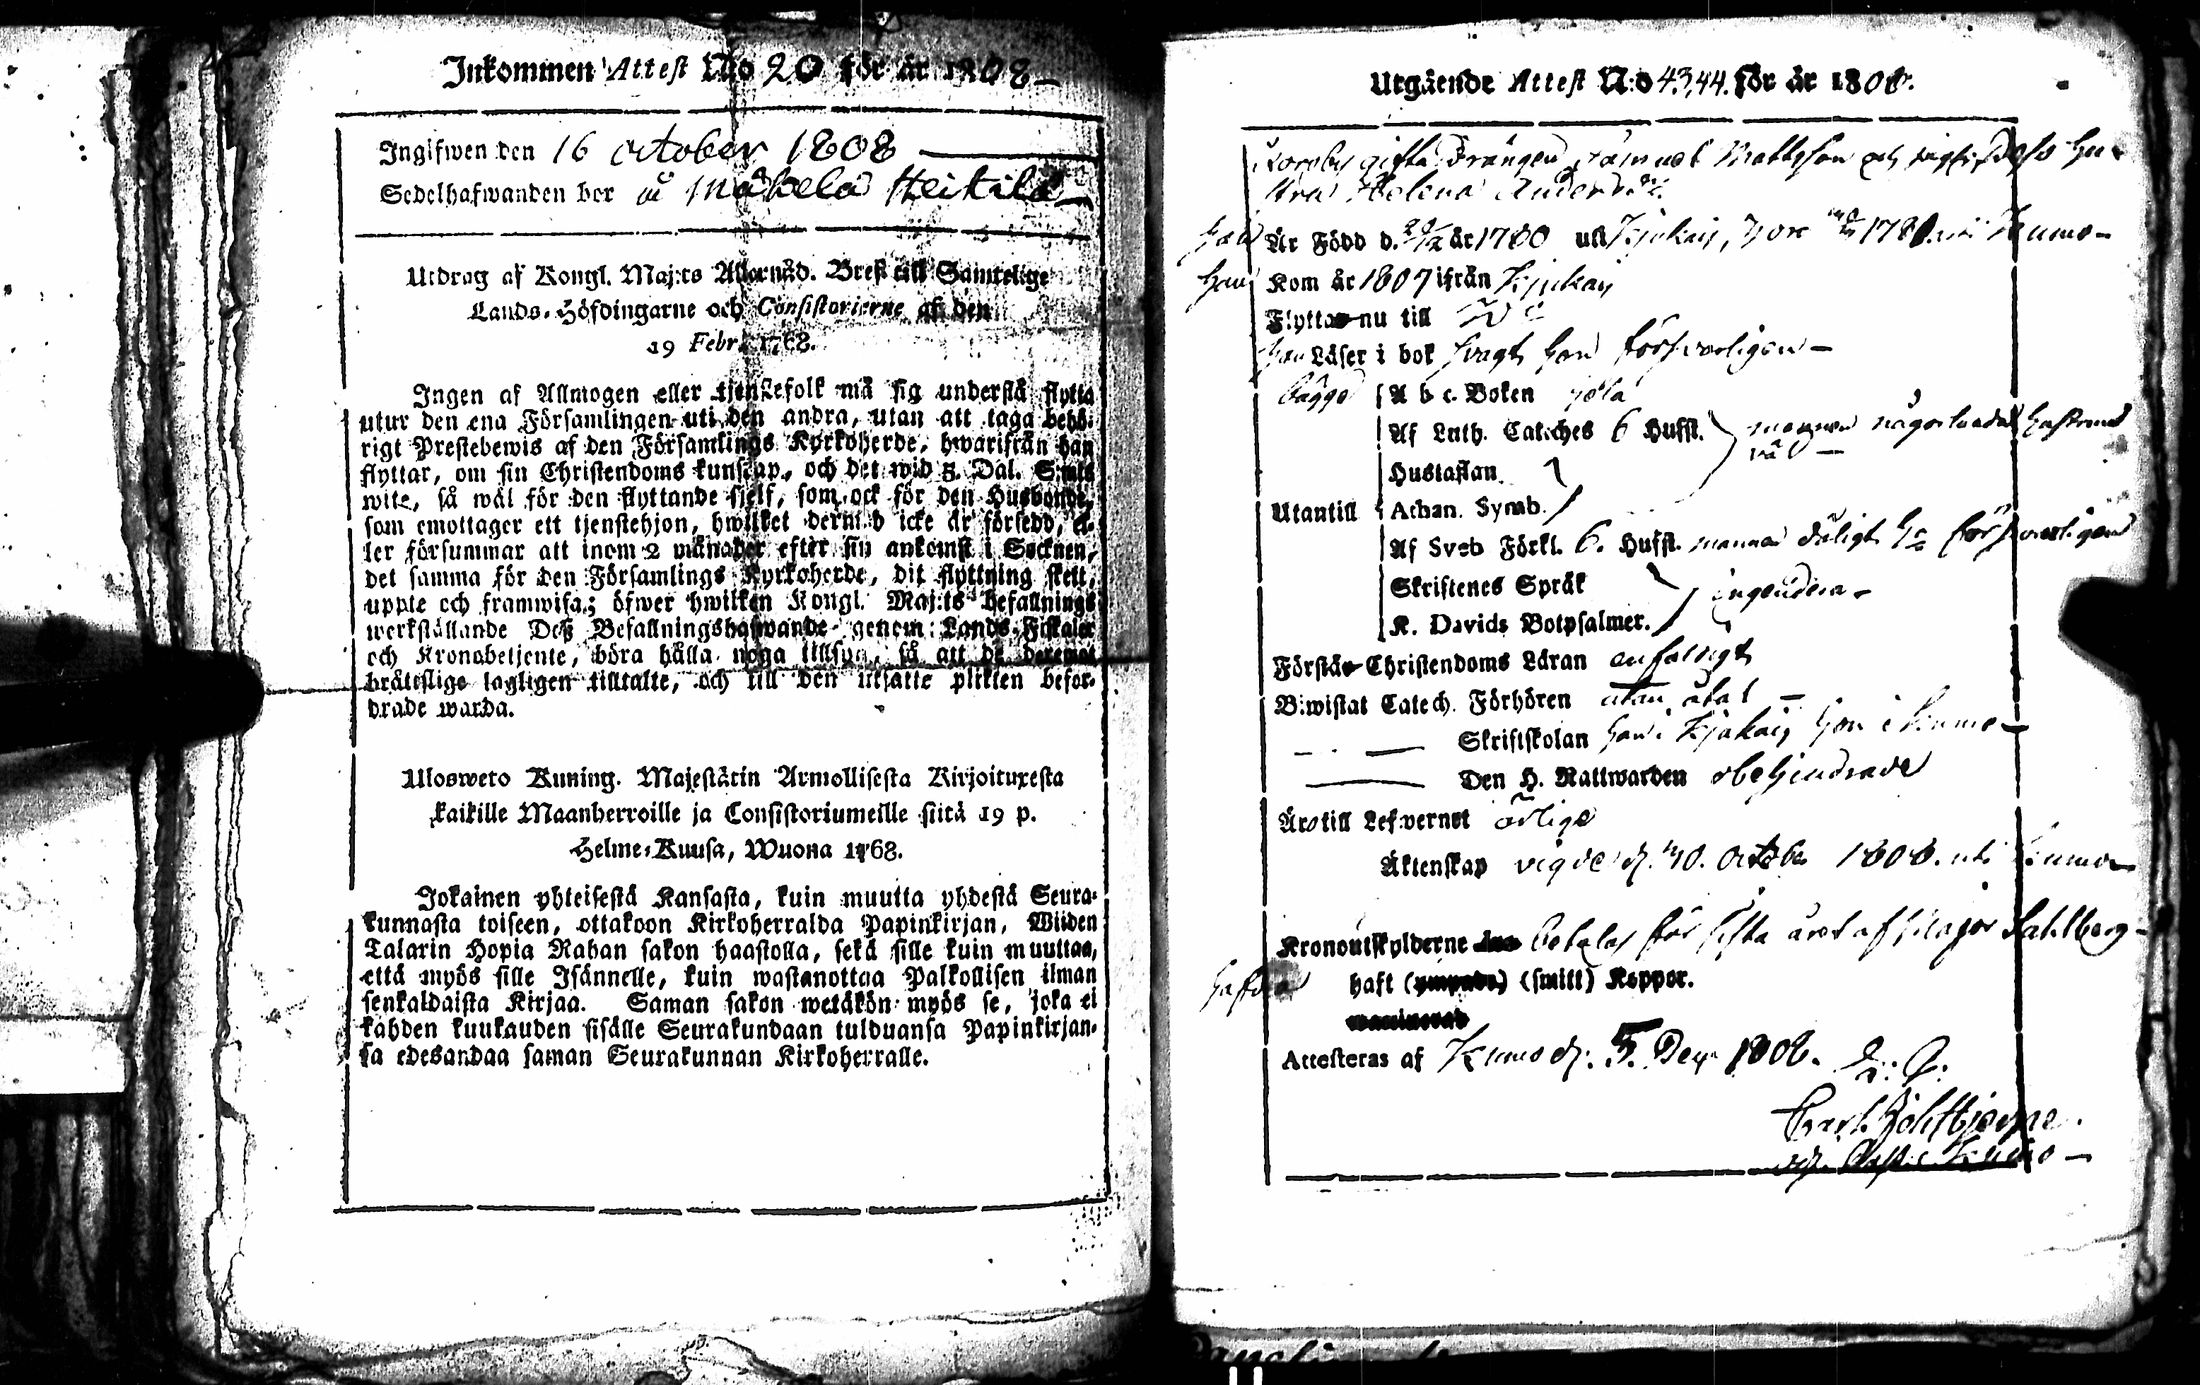 Inkommen Attest N:o 20 för år 1808 –
Ingifwen den 16 october 1808
Sedelhafwanden bor i Mäkelä Heikilä
Utdrag af Kongl. Maj:ts Allernåd. Bref till Samtelige
Lands-Höfdingarne och Consistorierne af den
19 Febr. 1768.
Ingen af Allmogen eller tjenstefolk må sig understå flytta
utur den ena Församlingen uti den andra, utan att taga behö-
rigt Prestebewis af den Församlings Kyrkoherde, hwarifrån han
flyttar, om sin Christendoms kunskap, och det wid 5. Dal. S:mts
wite, så wäl för den flyttande sjelf, som ock för den Husbonde,
som emottager ett tjenstehjon, hwilket dermed icke är försedd, el-
ler försummar att inom 2 månader efter sin ankomst i Socknen,
det samma för den Församlings Kyrkoherde, dit flyttning skett,
uppte och framwisa; öfwer hwilken Kongl. Maj:ts befallnings
werkställande Deß Befallningshafwande genom Lands-Fiskaler
och Kronobetjente, böra hålla noga tillsyn, så att de deremot
bråttslige lagligen tilltalte, och till den utsatte plikten befor-
drade warda.
Ulosweto Kuning. Majestätin Armollisesta Kirjoituxesta
kaikille Maanherroille ja Consistoriumeille siitä 19 p.
Helme-Kuusa, Wuona 1768.
Jokainen yhteisestä Kansasta, kuin muutta yhdestä Seura-
kunnasta toiseen, ottakoon Kirkoherralda Papinkirjan, Wiiden
Talarin Hopia Rahan sakon haastolla, sekä sille kuin muuttaa,
että myös sille Isännelle, kuin wastanottaa Palkollisen ilman
senkaldaista Kirjaa. Saman sakon wetäkön myös se, joka ei
kahden kuukauden sisälle Seurakundaan tulduansa Papinkirjan-
sa edesandaa saman Seurakunnan Kirkoherralle.
Utgående Attest N:o 43,44. för år 1808.
gifta Drängen Samuel Mattsson och Hu-
stru Helena Andersdr.
Är Född d. år 1780 uti Kjukais, hon 1780. uti Kumo –
han Kom år 1807 ifrån Kjukais
Flyttar nu till
han Läser i bok svagt hon försvarligen –
bägge A b c. Boken
Af Luth. Catches 6 Hufst. mannen någorlunda hustrun
väl –
Hustaflan
Utantill Athan. Symb.
Af Sveb Förkl. 6. Hufst. mannen dåligt hon försvarligen
Skriftenes Språk ingendera –
K. Davids Botpsalmer.
Förstår Christendoms Läran enfaldigt
Biwistat Catech. Förhören utan åtal –
Skriftskolan han i Kjukais hon i Kumo –
Den H. Nattwarden obehindrade
Äro till Lefwernet ärlige
Äktenskap vigde d. 30. October 1808. uti Kumo –
Kronoutskylderne betalas för sista året af Major Sahlberg –
hafva haft (ympade) (smitt) Koppor.
Attesteras af Kumo d. 5. Dec. 1808.